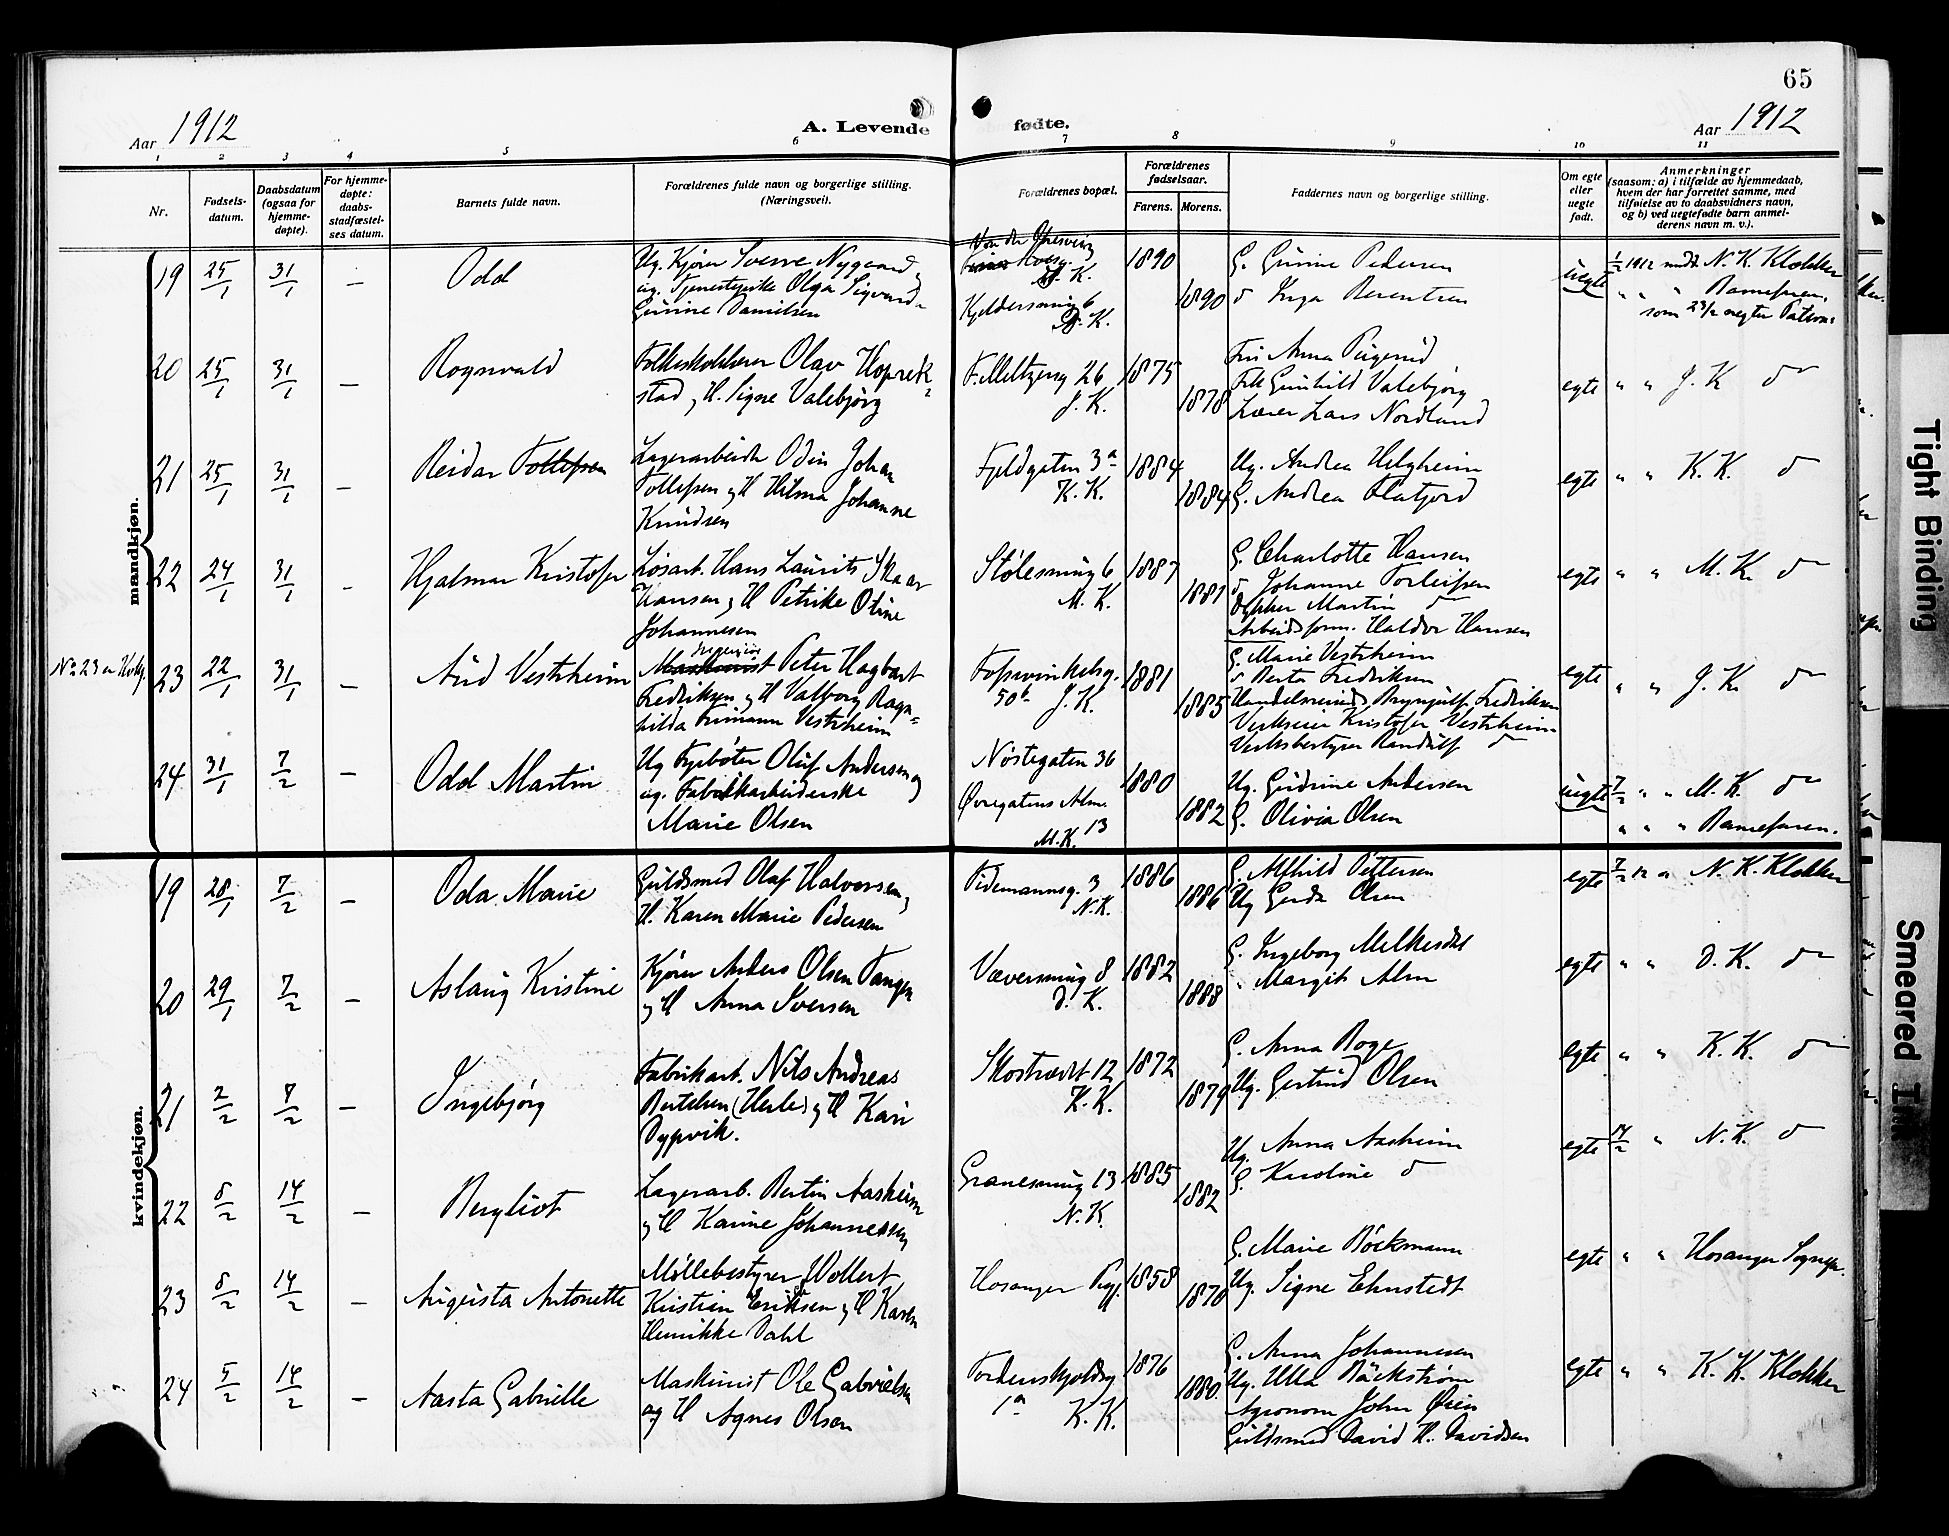 65
Aar 1912
A. Levende
fødte.
Aar 1912
1 2 3 4 5 6 7 8 9 10 11
Nr.
Fødsels-
datum.
Daabsdatum
(ogsaa for
hjemme-
døpte).
For hjemme-
døpte:
daabs-
stadfæstel-
ses datum.
Barnets fulde navn.
Forældrenes fulde navn og borgerlige stilling.
(Næringsvei).
Forældrenes bopæl.
Forældrenes
fødselsaar.
Farens. Morens.
Faddernes navn og borgerlige stilling.
Om egte
eller
uegte
født.
Anmerkninger
(saasom: a) i tilfælde av hjemmedaab,
hvem der har forrettet samme, med
tilføielse av to daabsvidners navn,
og b) ved uegtefødte barn anmel-
derens navn m. v.).
mandkjøn.
19 25/1 31/1 — Odd
Ug. Kjører Sverre Nygaard
ug. Tjenestepike Olga Sigvarda
Gurine Danielsen
N. K.
Kjeldersmug 6
1890
1890
G. Gurine Pedersen
d Inga Berentsen
uegte
1/2 1912 meldt N. K. Klokker
" " Barnefaren,
20 25/1 31/1 — Rognvald
Folkeskolelærer Olav Hoprek-
stad og H. Signe Valebjørg
F. Meltzersg 26
J. K.
1875
1878
Frk Gunhild Valebjørg
Lærer Lars Nordland
egte " " J. K do
21 25/1 31/1 — Reidar Tollefsen
Lagerarbeider Odin Johan
Tollefsen og H Hilma Johanne
Knudsen
Fjeldgaten 3a
K. K.
1884
1884
Ug. Andrea Helgheim
G. Andrea Flatjord
egte " " K. K. do
22 24/1 31/1 — Hjalmar Kristofer
Løsarb. Hans Laurits Skaar
Hansen og H Petrike Otine
Johannesen
Stølesmug 6
M. K.
1887
1881
G. Charlotte Hansen
d Johanne Torleifsen
Martin do
Arbeidsform. Haldor Hansen
egte " " M. K. do
No 23 er
23 22/1 31/1 — Aud Vestrheim
Maskinist Peter Hagbart
Fredriksen og H Valborg Ragn-
hilda Frimann Vestrheim
Fosswinkelsg.
50b J. K.
1881
1885
G. Marie Vestrheim
d. Berta Fredriksen
Handelsreisende Brynjulf Fredriksen
Verkseier Kristofer Vestrheim
Verksbestyrer Randulf do
egte " " J. K. do
24 31/1 7/2 — Odd Martin
Ug Fyrbøter Oluf Andersen og
ug. Fabrikarbeiderske
Marie Olsen
Nøstegaten 36
Øvregatens Alm.
13
M. K.
1880
1882
Ug. Gudrine Andersen
G. Olivia Olsen
uegte 7/2 " " M. K. do
" " " Barnefaren.
kvindekjøn.
19 28/1 7/2 — Oda Marie
Guldsmed Olaf Halvorsen og
H. Karen Marie Pedersen
Tidemannsg. 3
N. K.
1886
1886
G. Alfhild Pettersen
Ug Gerda Olsen
egte 7/2 12 " N. K. Klokker
20 29/1 7/2 — Aslaug Kristine
Kjører Anders Olsen Tangen
og H Anna Iversen
Væversmug 8
D. K.
1882
1888
G. Ingeborg Melkesdal
" Margit Alm
egte " " D. K. do
21 2/2 7/2 — Ingebjørg
Fabrikarb. Nils Andreas
Bertelsen (Herle) og H Kari
Dypvik.
Skostrædet 12
K. K.
1872
1879
G. Anna Boge
Ug. Gertrud Olsen
egte " " K. K. do
22 8/2 14/2 — Bergliot
Lagerarb. Bertin Aasheim
og H Karine Johannessen
Granesmug 13
N. K.
1885
1882
Ug. Anna Aasheim
G. Karoline do
egte 14/2 " N. K. do
23 8/2 14/2 — Augusta Antonette
Møllebestyrer Wollert
Kristian Eriksen og H Karen
Henrikke Dahl
Hosanger Pgj.
1858
1870
G. Marie Bøckmann
Ug. Signe Ehnstedt
egte " " Hosanger Sognepr.
24 5/2 14/2 — Aasta Gabrielle
Maskinist Ole Gabrielsen
og H Agnes Olsen
Tordenskjoldsg
1a K. K.
1876
1880.
G. Anna Johannesen
Ug. Ulla Bäckstrøm
Agronom John Øien
Guldsmed David H. Davidsen
egte " " K. K. Klokker
Tight Binding
Smeared Ink